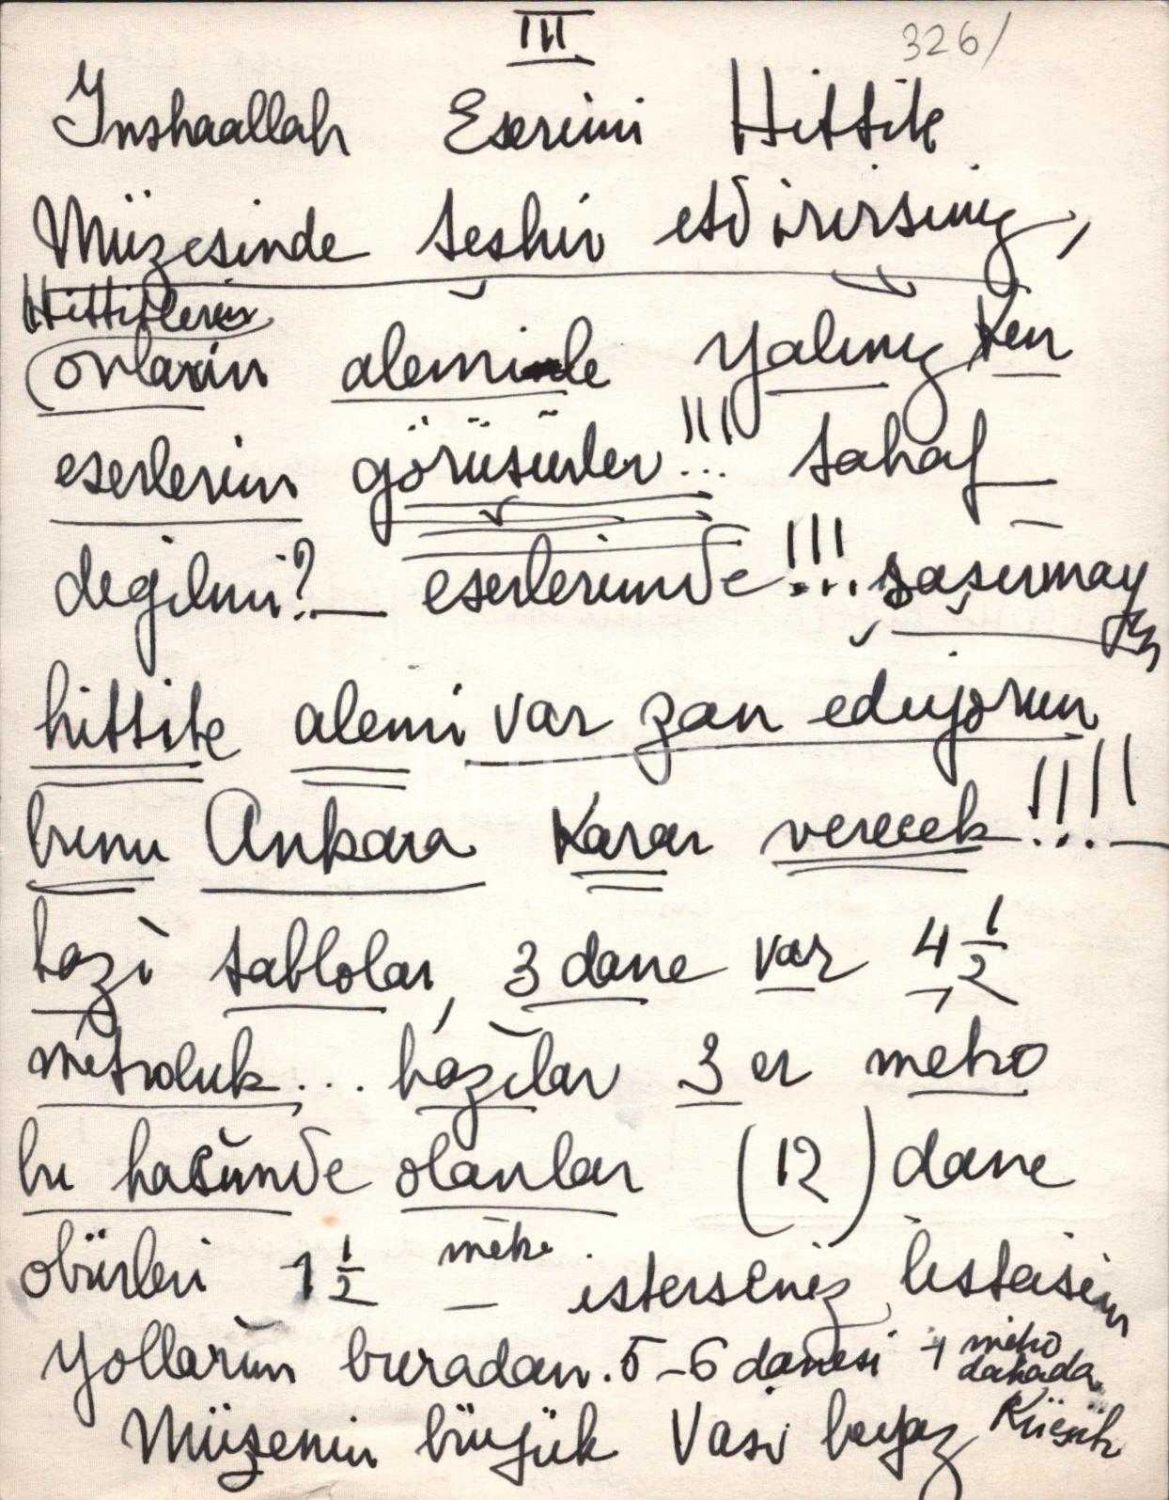 III
326/
Inshaallah Eserimi Hittite
Müzesinde teshir etdirirsiniz,
Hittitlerin
(onlarin aleminde yaliniz ken
eserlerim görüsürler!!! tahaf
degilmi? — eserlerimde!!! şaşirmayin
hittite alemi var zan ediyorum
bunu Ankara Karar verecek!!!! —
bazi tablolar, 3 dane var 4 1/2
metroluk... bazilar 3 er metro
bu hacimde olanlar (12) dane
obürleri 1 1/2 metr. — isterseniz listasini
yollarim buradan. 5-6 danesi 1 metro
dahada
Küçük
Müzenin büyük Vasi beyaz